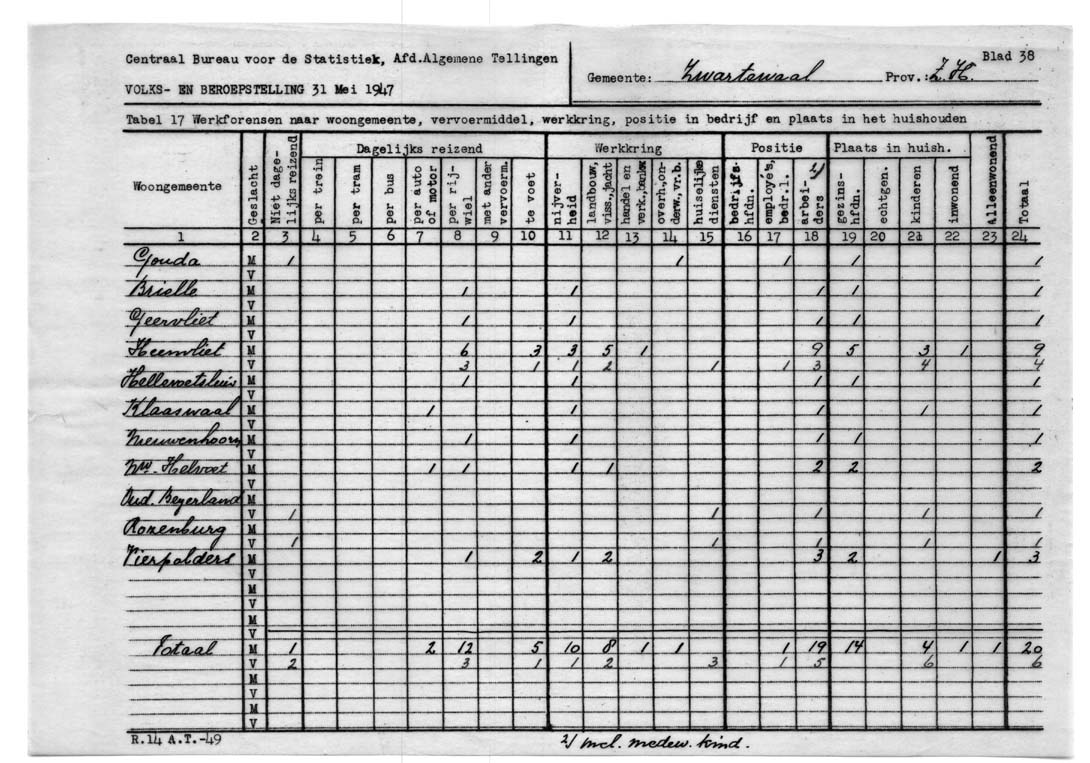 Centraal Bureau voor de Statistiek, Afd.Algemene Tellingen
VOLKS- EN BEROEPSTELLING 31 Mei 1947
Gemeente: Zwartewaal Prov.: Z.H. Blad 38
Tabel 17 Werkforensen naar woongemeente, vervoermiddel, werkkring, positie in bedrijf en plaats in het huishouden
Woongemeente Geslacht Niet dage-lijks reizend Dagelijks reizend Werkkring Positie Plaats in huish. Alleenwonend Totaal
per trein per tram per bus per auto of motor per rij-wiel met ander vervoerm. te voet nijver-heid landbouw, viss.,jacht handel en verk.,bankw. overh.,on-derw,vr.b. huiselijke diensten bedrijfs-hfdn. employé's, bedr.l. arbei-ders 2) gezins-hfdn. echtgen. kinderen inwonend
1 2 3 4 5 6 7 8 9 10 11 12 13 14 15 16 17 18 19 20 21 22 23 24
Gouda M 1 1 1 1 1
V
Brielle M 1 1 1 1 1
V
Geervliet M 1 1 1 1 1
V
Heenvliet M 6 3 3 5 1 9 5 3 1 9
V 3 1 1 2 1 1 3 4 4
Hellevoetsluis M 1 1 1 1 1
V
Klaaswaal M 1 1 1 1 1
V
Nieuwenhoorn M 1 1 1 1 1
V
Nw. Helvoet M 1 1 1 1 2 2 2
V
Oud. Beyerland M
V 1 1 1 1 1
Rozenburg M
V 1 1 1 1 1
Vierpolders M 1 2 1 2 3 2 1 3
V
M
V
M
V
Totaal M 1 2 12 5 10 8 1 1 1 19 14 4 1 1 20
V 2 3 1 1 2 3 1 5 6 6
M
V
M
V
R.14 A.T.-49
2) incl. medew. kind.